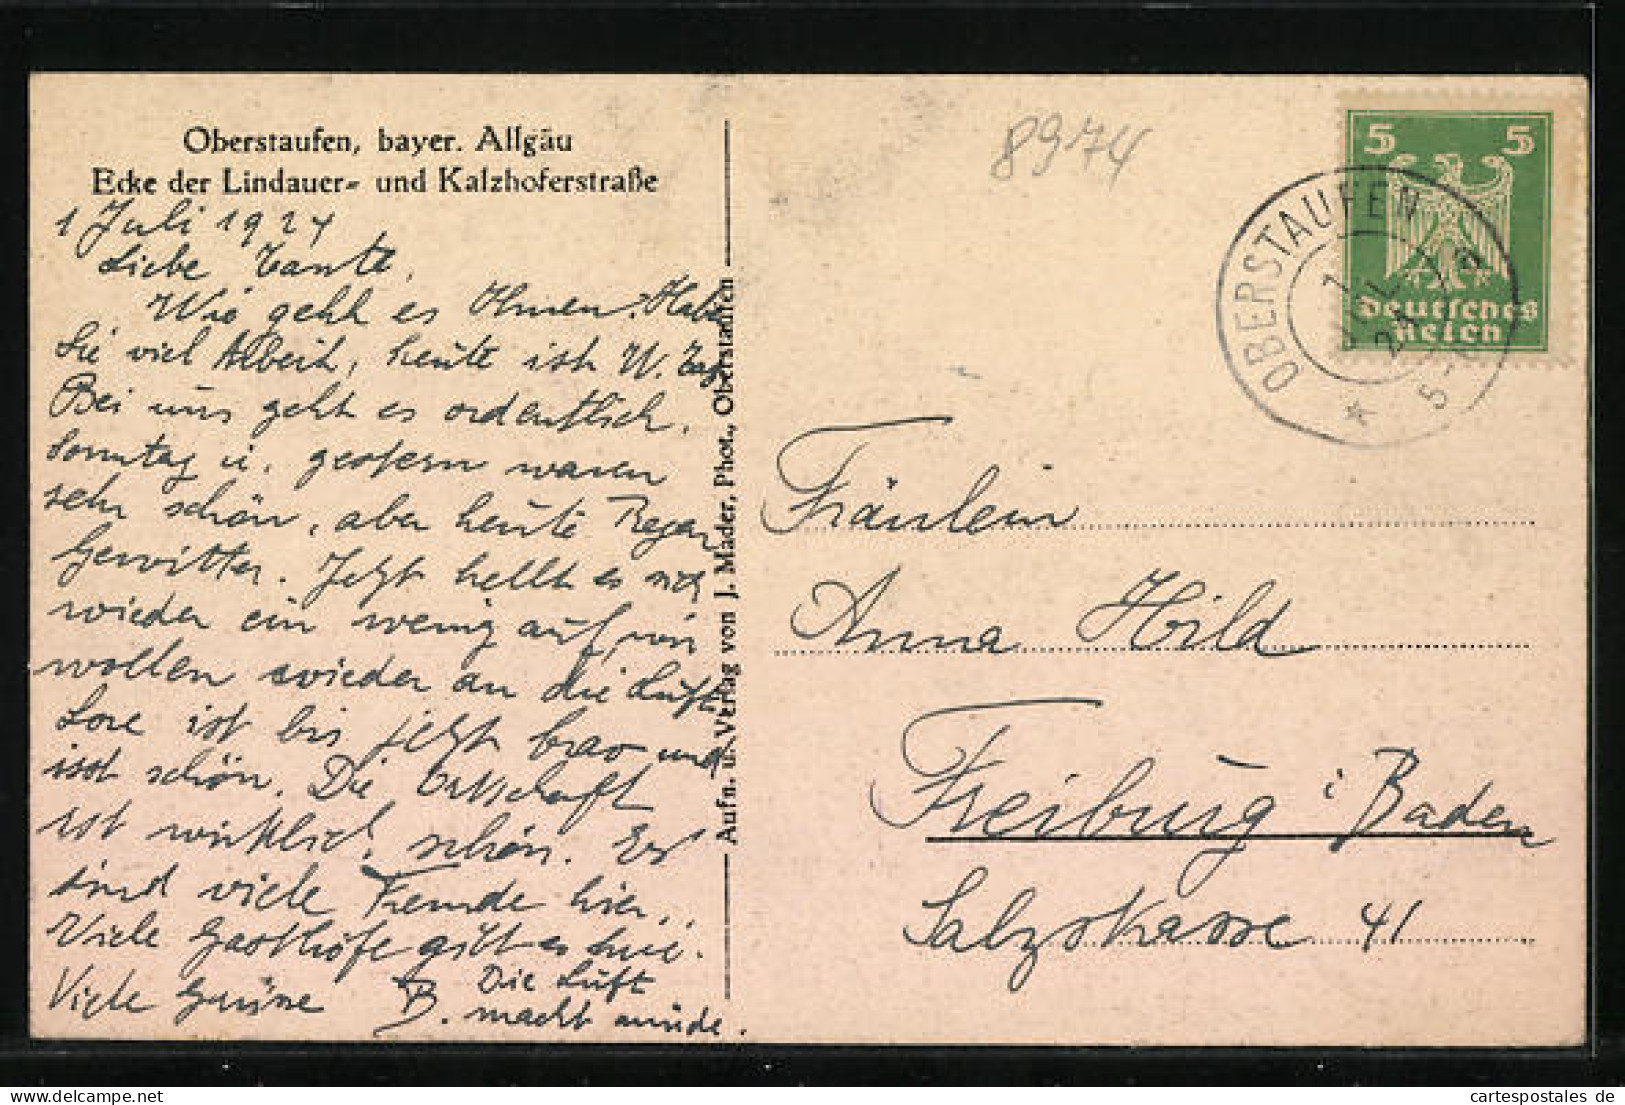 Oberstaufen, bayer. Allgäu
Ecke der Lindauer- und Kalzhoferstraße
1 Juli 1924
Liebe Tante,
Wie geht es Ihnen. Haben
Sie viel Arbeit, heute ist W.
Bei uns geht es ordentlich.
Sonntag u. gestern waren
sehr schön, aber heute Regen
Gewitter. Jetzt hellt es sich
wieder ein wenig auf, wir
wollen wieder an die Luft.
Lore ist bis jetzt brav und
isst schön. Die Ortschaft
ist wirklich schön. Es
sind viele Fremde hier.
Viele Gasthöfe gibt es hie.
Viele Grüsse B. Die Luft
macht müde.
Aufn. u. Verlag von J. Mader, Phot., Oberstaufen
8974
5 5
Deutsches
Reich
OBERSTAUFEN
Fräulein
Anna Hild
Freiburg i Baden
Salzstrasse 41
cartespostales de
www.cartespostales.de